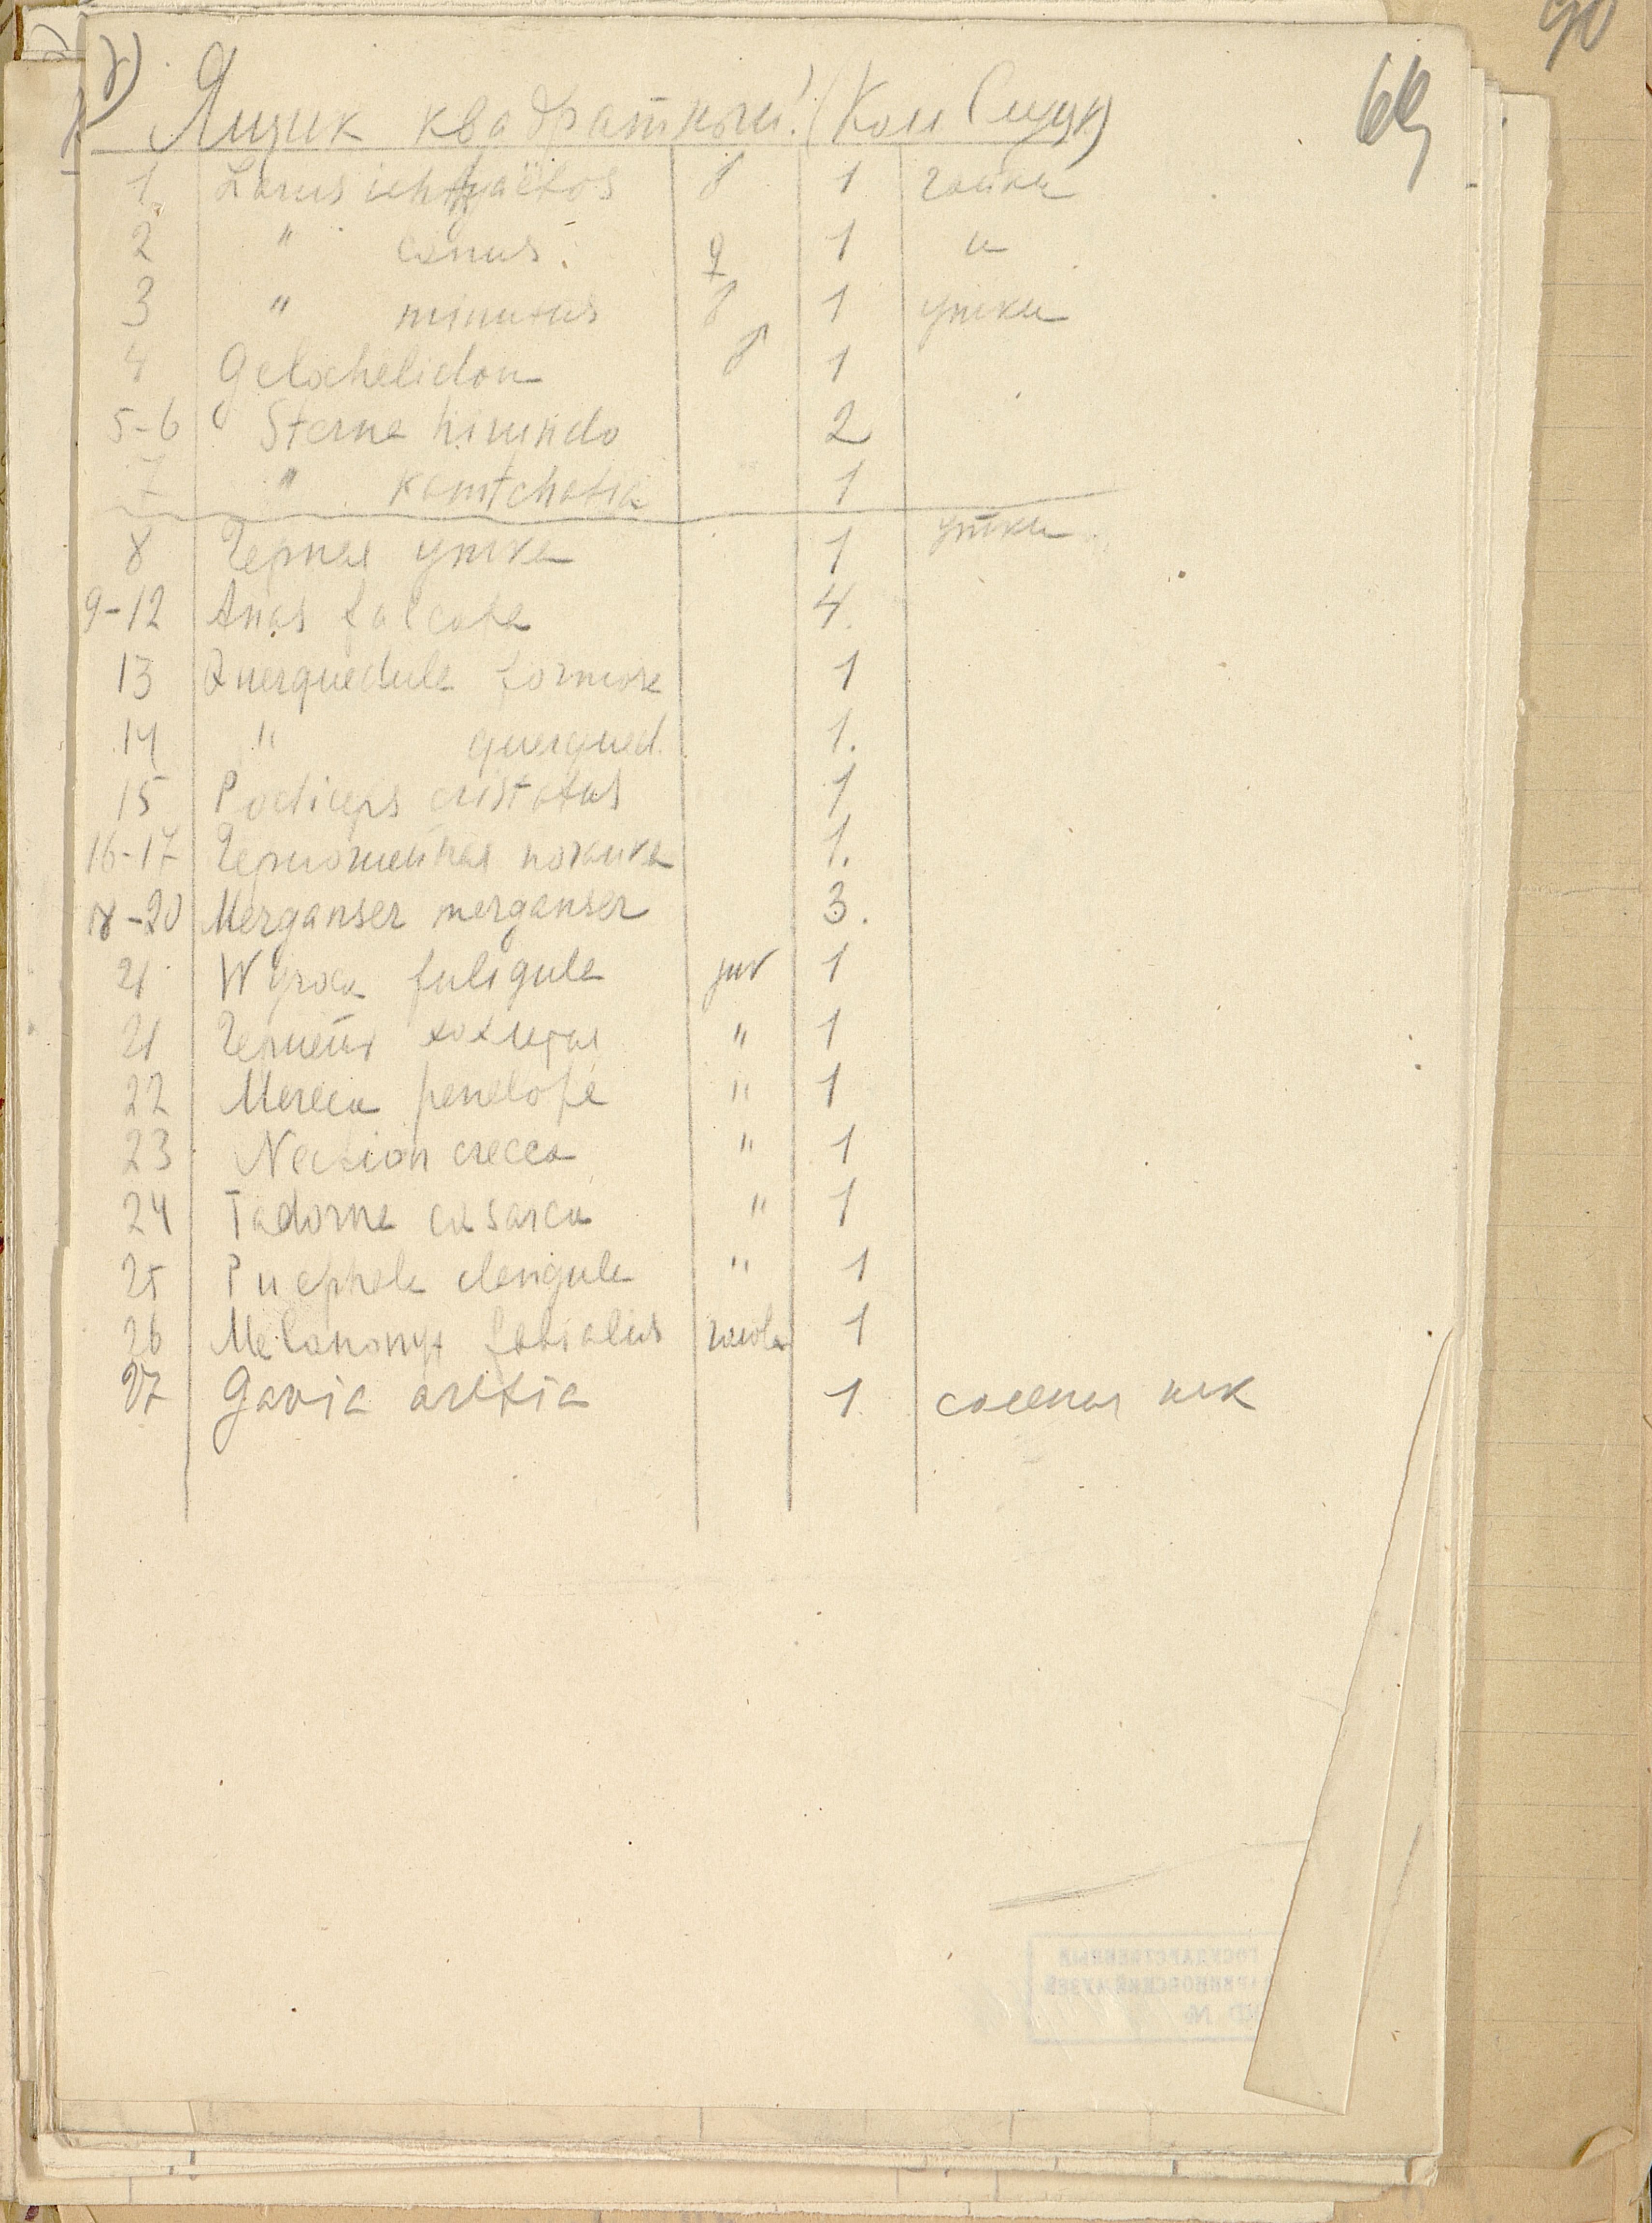 90
8) Ящик квадратный. (Кол Сущк)
69
1 Larus ichthyaëtos ♂ 1 чайки
2 " canus. ♀ 1 "
3 " minutus ♂ 1 утки
4 Gelochelidon ♂ 1
5-6 Sterna hirundo 2
7 " kamtchatia 1
8 Черная утка 1 утки
9-12 Anas falcata 4.
13 Querquedula formosa 1
14 " querqued. 1.
15 Podiceps cristatus 1
16-17 Черношейная поганка 1.
18-20 Merganser merganser 3.
21 Nyroca fuligula juv 1
21 Чернеть хохлатая " 1
22 Mereca penelope " 1
23 Nettion crecca " 1
24 Tadorna casarca " 1
25 Bucephala clangula " 1
26 Melanonyx fabialus 1
27 Gavia arctia 1
ГОСУДАРСТВЕННЫЙ
ДАРВИНОВСКИЙ МУЗЕЙ
№